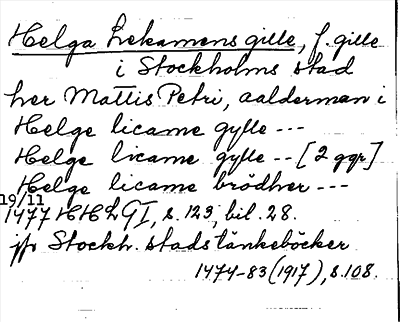 Helga Lekamens gille, f. gille
i Stockholms stad
her Mattis Petri, aalderman i
Helge licame gylle ---
Helge licame gylle -- [2 ggr]
Helge licame brödher ---
19/11
1477 HH L GI, s. 123, bil. 28.
jfr Stockh. stads tänkeböcker
1474-83 (1917), s. 108.